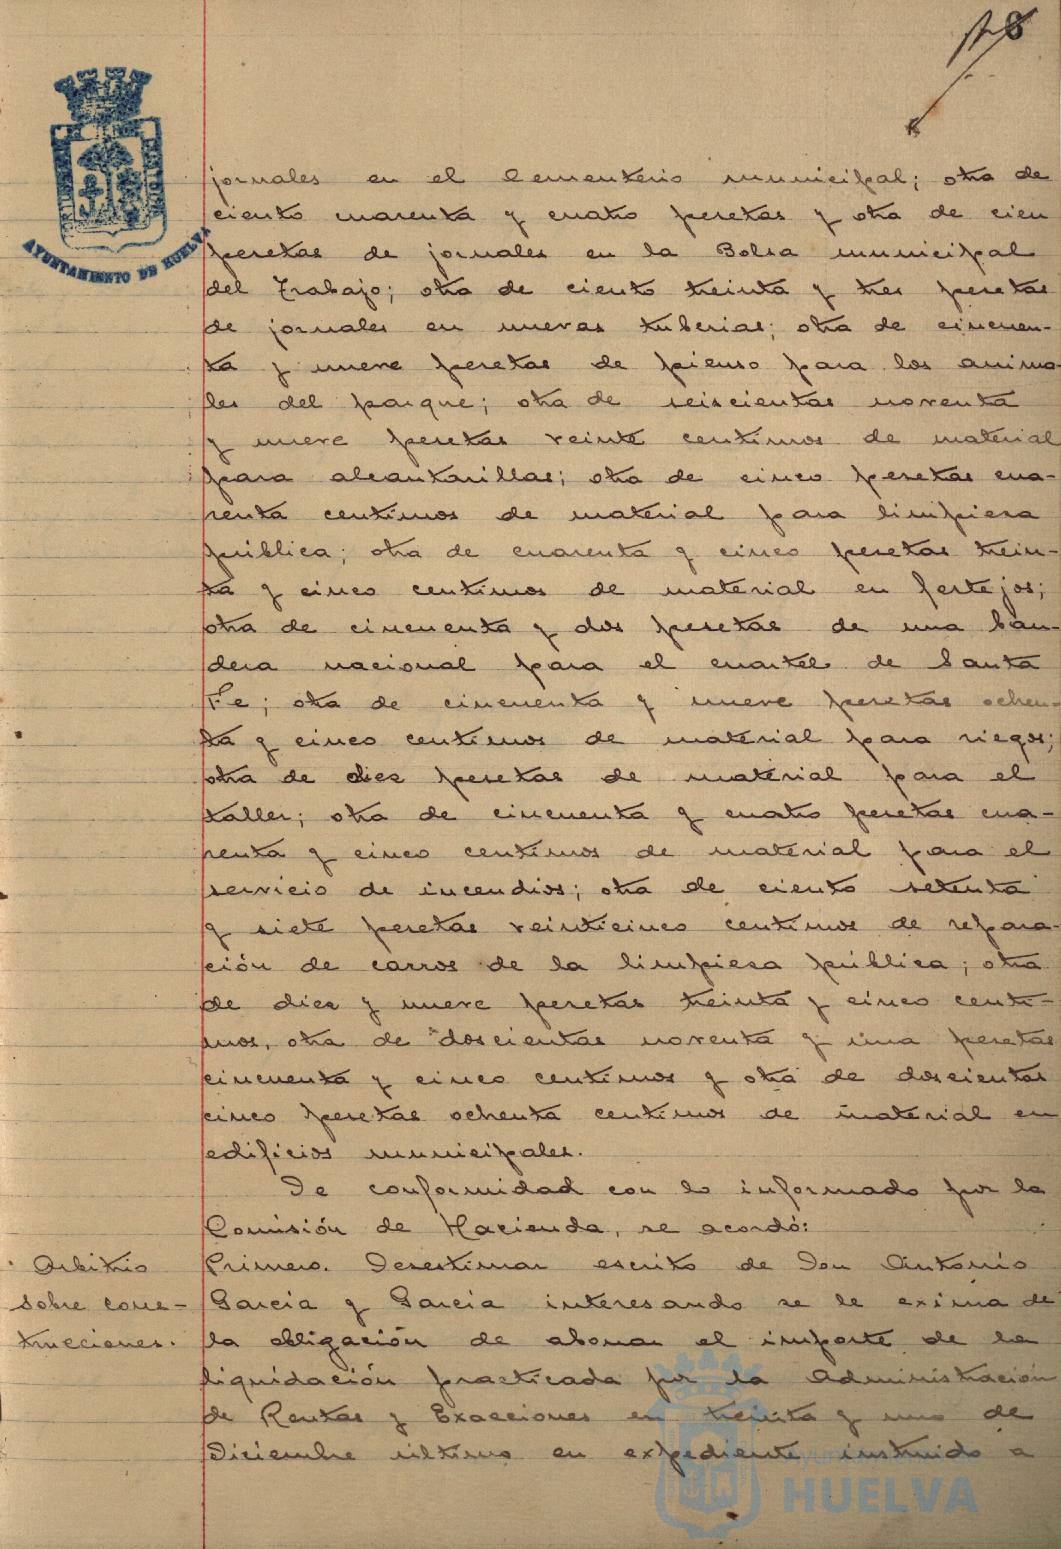 8
AYUNTAMIENTO DE HUELVA
jornales en el Cementerio municipal; otra de
ciento cuarenta y cuatro pesetas y otra de cien
pesetas de jornales en la Bolsa municipal
del Trabajo; otra de ciento treinta y tres pesetas
de jornales en nuevas tuberias; otra de cincuen-
ta y nueve pesetas de pienso para los anima-
les del parque; otra de seiscientas noventa
y nueve pesetas veinte centimos de material
para alcantarillas; otra de cinco pesetas cua-
renta centimos de material para limpieza
pública; otra de cuarenta y cinco pesetas trein-
ta y cinco centimos de material en festejos;
otra de cincuenta y dos pesetas de una ban-
dera nacional para el cuartel de Santa
Fe; otra de cincuenta y nueve pesetas ochen-
ta y cinco centimos de material para riegos;
otra de diez pesetas de material para el
taller; otra de cincuenta y cuatro pesetas cua-
renta y cinco centimos de material para el
servicio de incendios; otra de ciento setenta
y siete pesetas veinticinco centimos de repara-
ción de carros de la limpieza pública; otra
de diez y nueve pesetas treinta y cinco centi-
mos, otra de doscientas noventa y una pesetas
cincuenta y cinco centimos y otra de doscientas
cinco pesetas ochenta centimos de material en
edificios municipales.
De conformidad con lo informado por la
Comisión de Hacienda, se acordó:
Arbitrio
sobre cons-
trucciones.
Primero. Desestimar escrito de Don Antonio
Garcia y Garcia interesando se le exima de
la obligación de abonar el importe de la
liquidación practicada por la Administración
de Rentas y Exacciones en treinta y uno de
Diciembre último en expediente instruido a
HUELVA